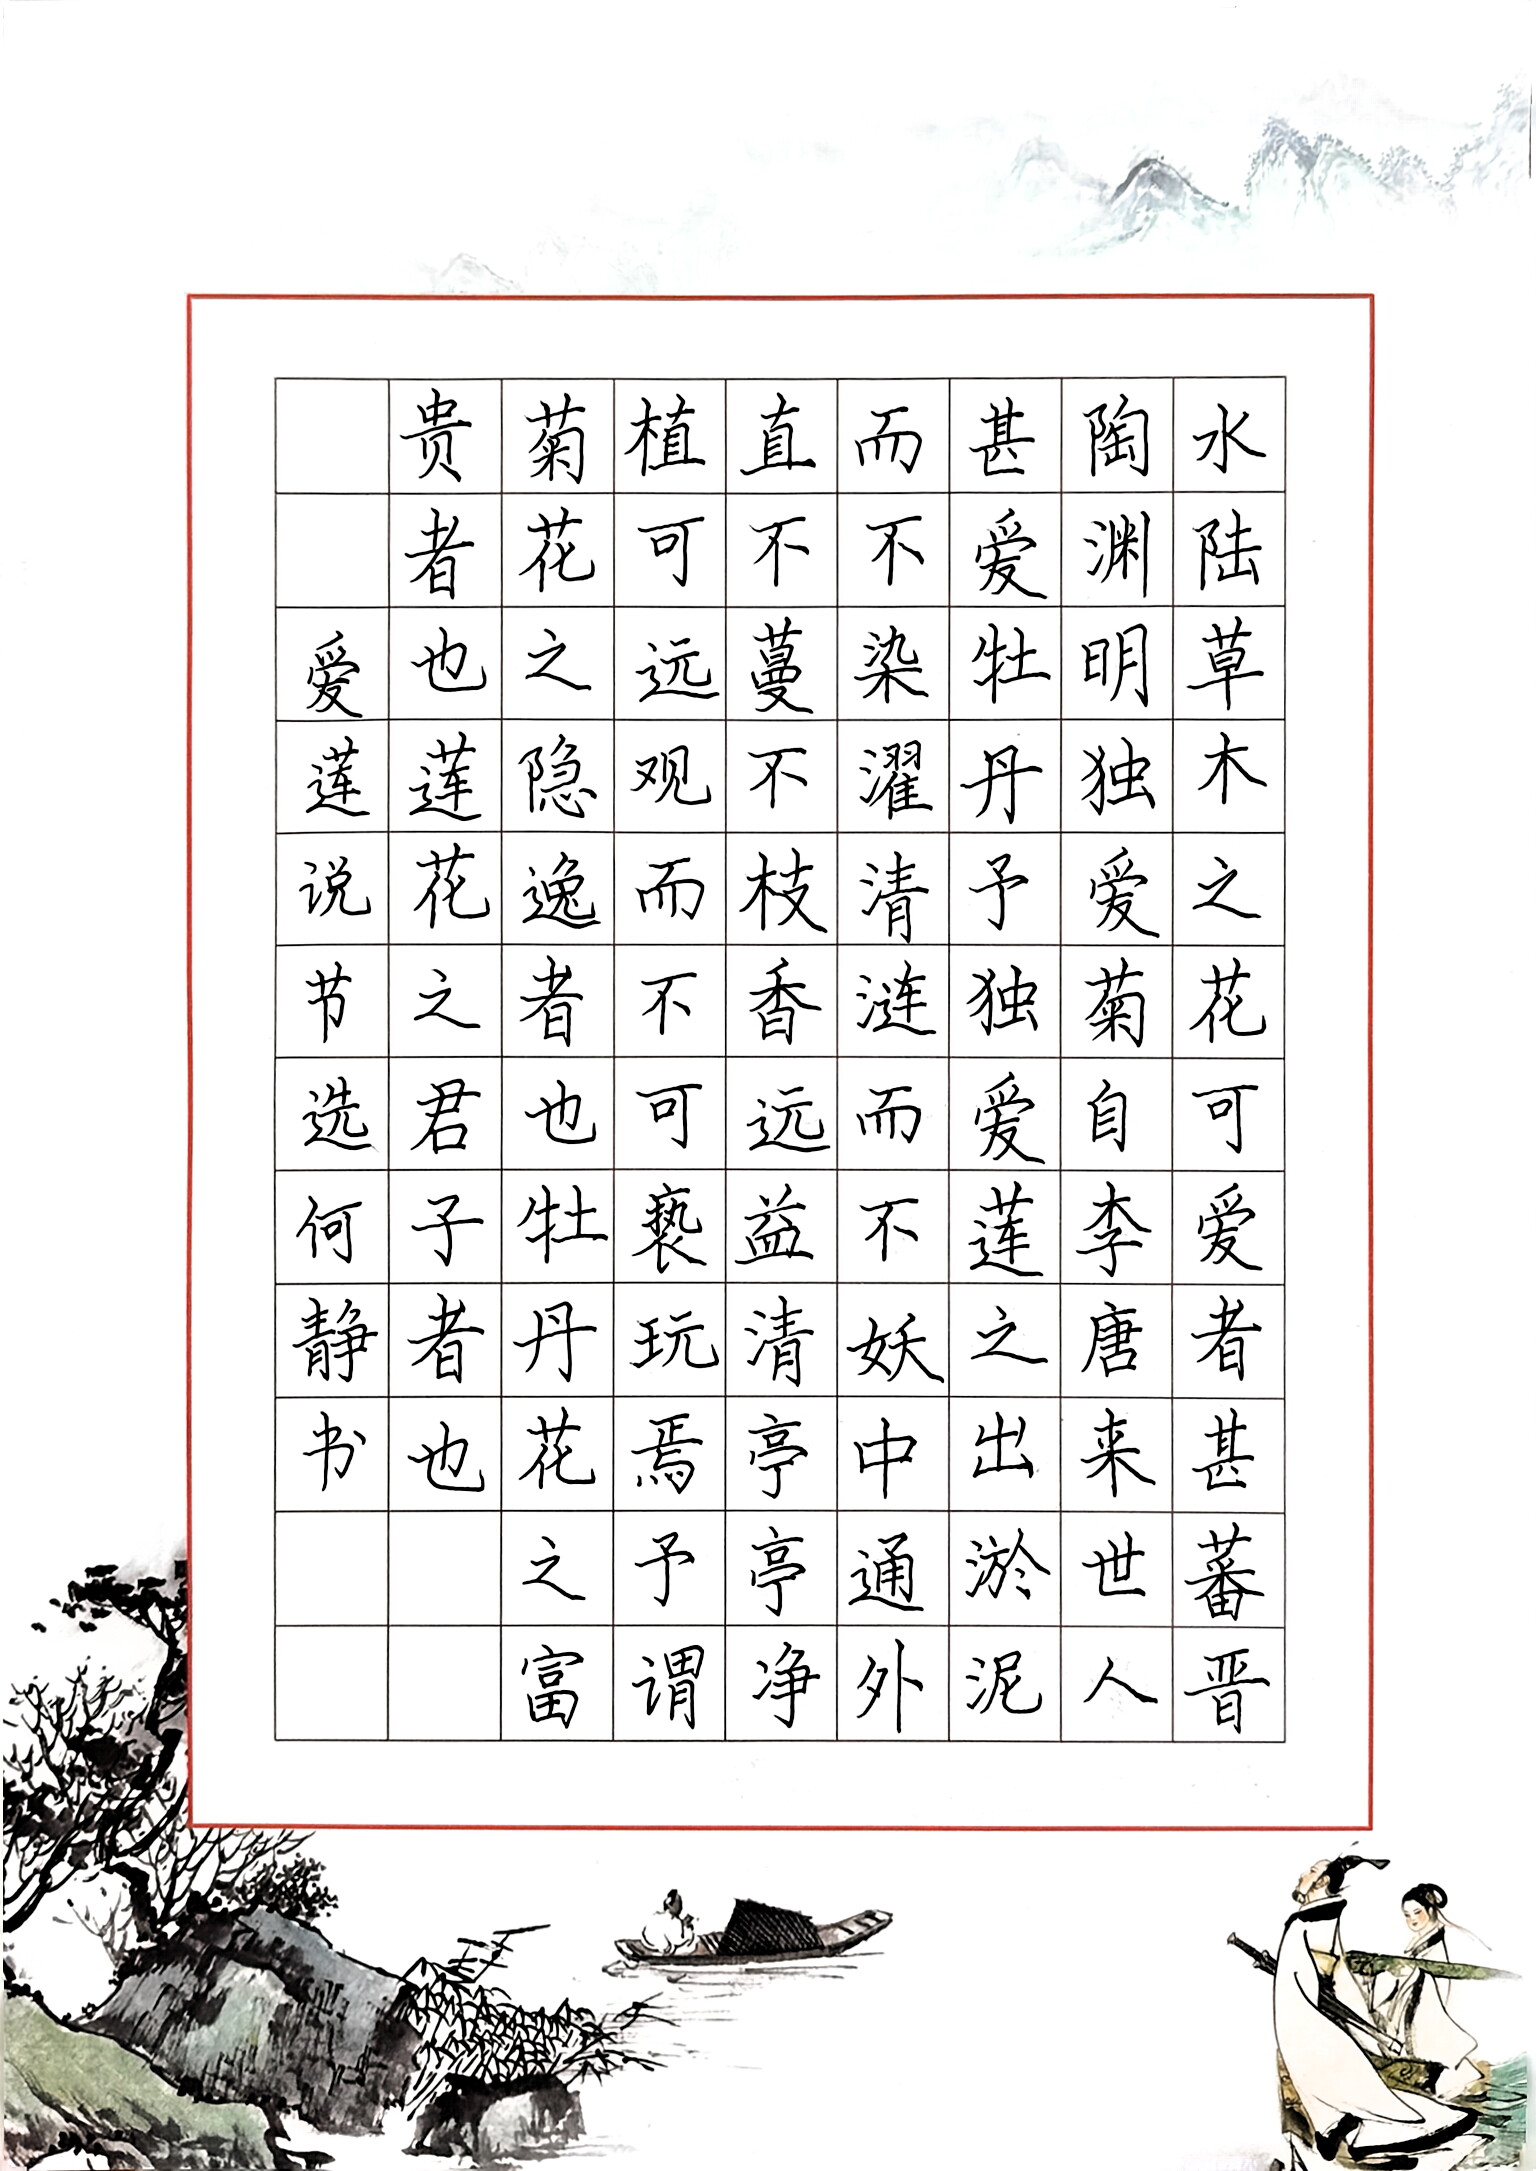 水陆草木之花可爱者甚蕃晋
陶渊明独爱菊自李唐来世人
甚爱牡丹予独爱莲之出淤泥
而不染濯清涟而不妖中通外
直不蔓不枝香远益清亭亭净
植可远观而不可亵玩焉予谓
菊花之隐逸者也牡丹花之富
贵者也莲花之君子者也
爱莲说节选何静书